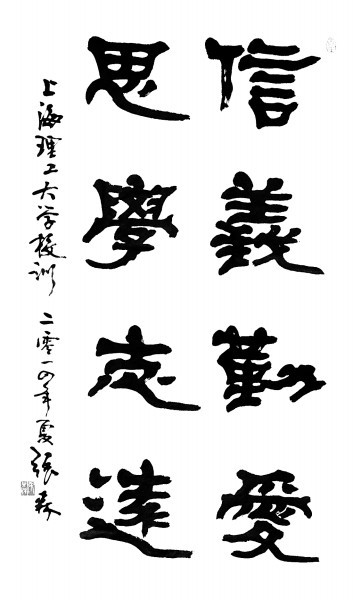 信義勤愛
思學志遠
上海理工大学校训 二零一四年夏 张森